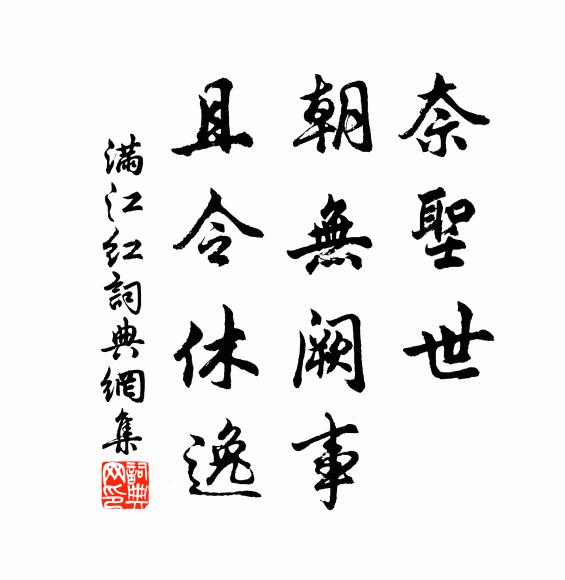 奈聖世
朝無闕事
且令休逸
滿江紅詞典網集
詞典
网印